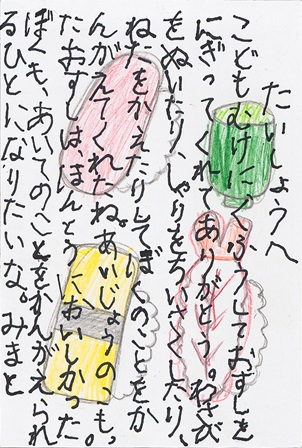 たいしょうへ
こどもむけにくふうしておすしを
にぎってくれてありがとう。わさび
をぬいたり、しゃりをちいさくしたり、
ねたをかえたりしてぼくのことをか
んがえてくれたね。あいじょうの、も
たおすしは、ほんとうにおいしかった。
ぼくも、あいてのことをかんがえられ
るひとになりたいな。みまと